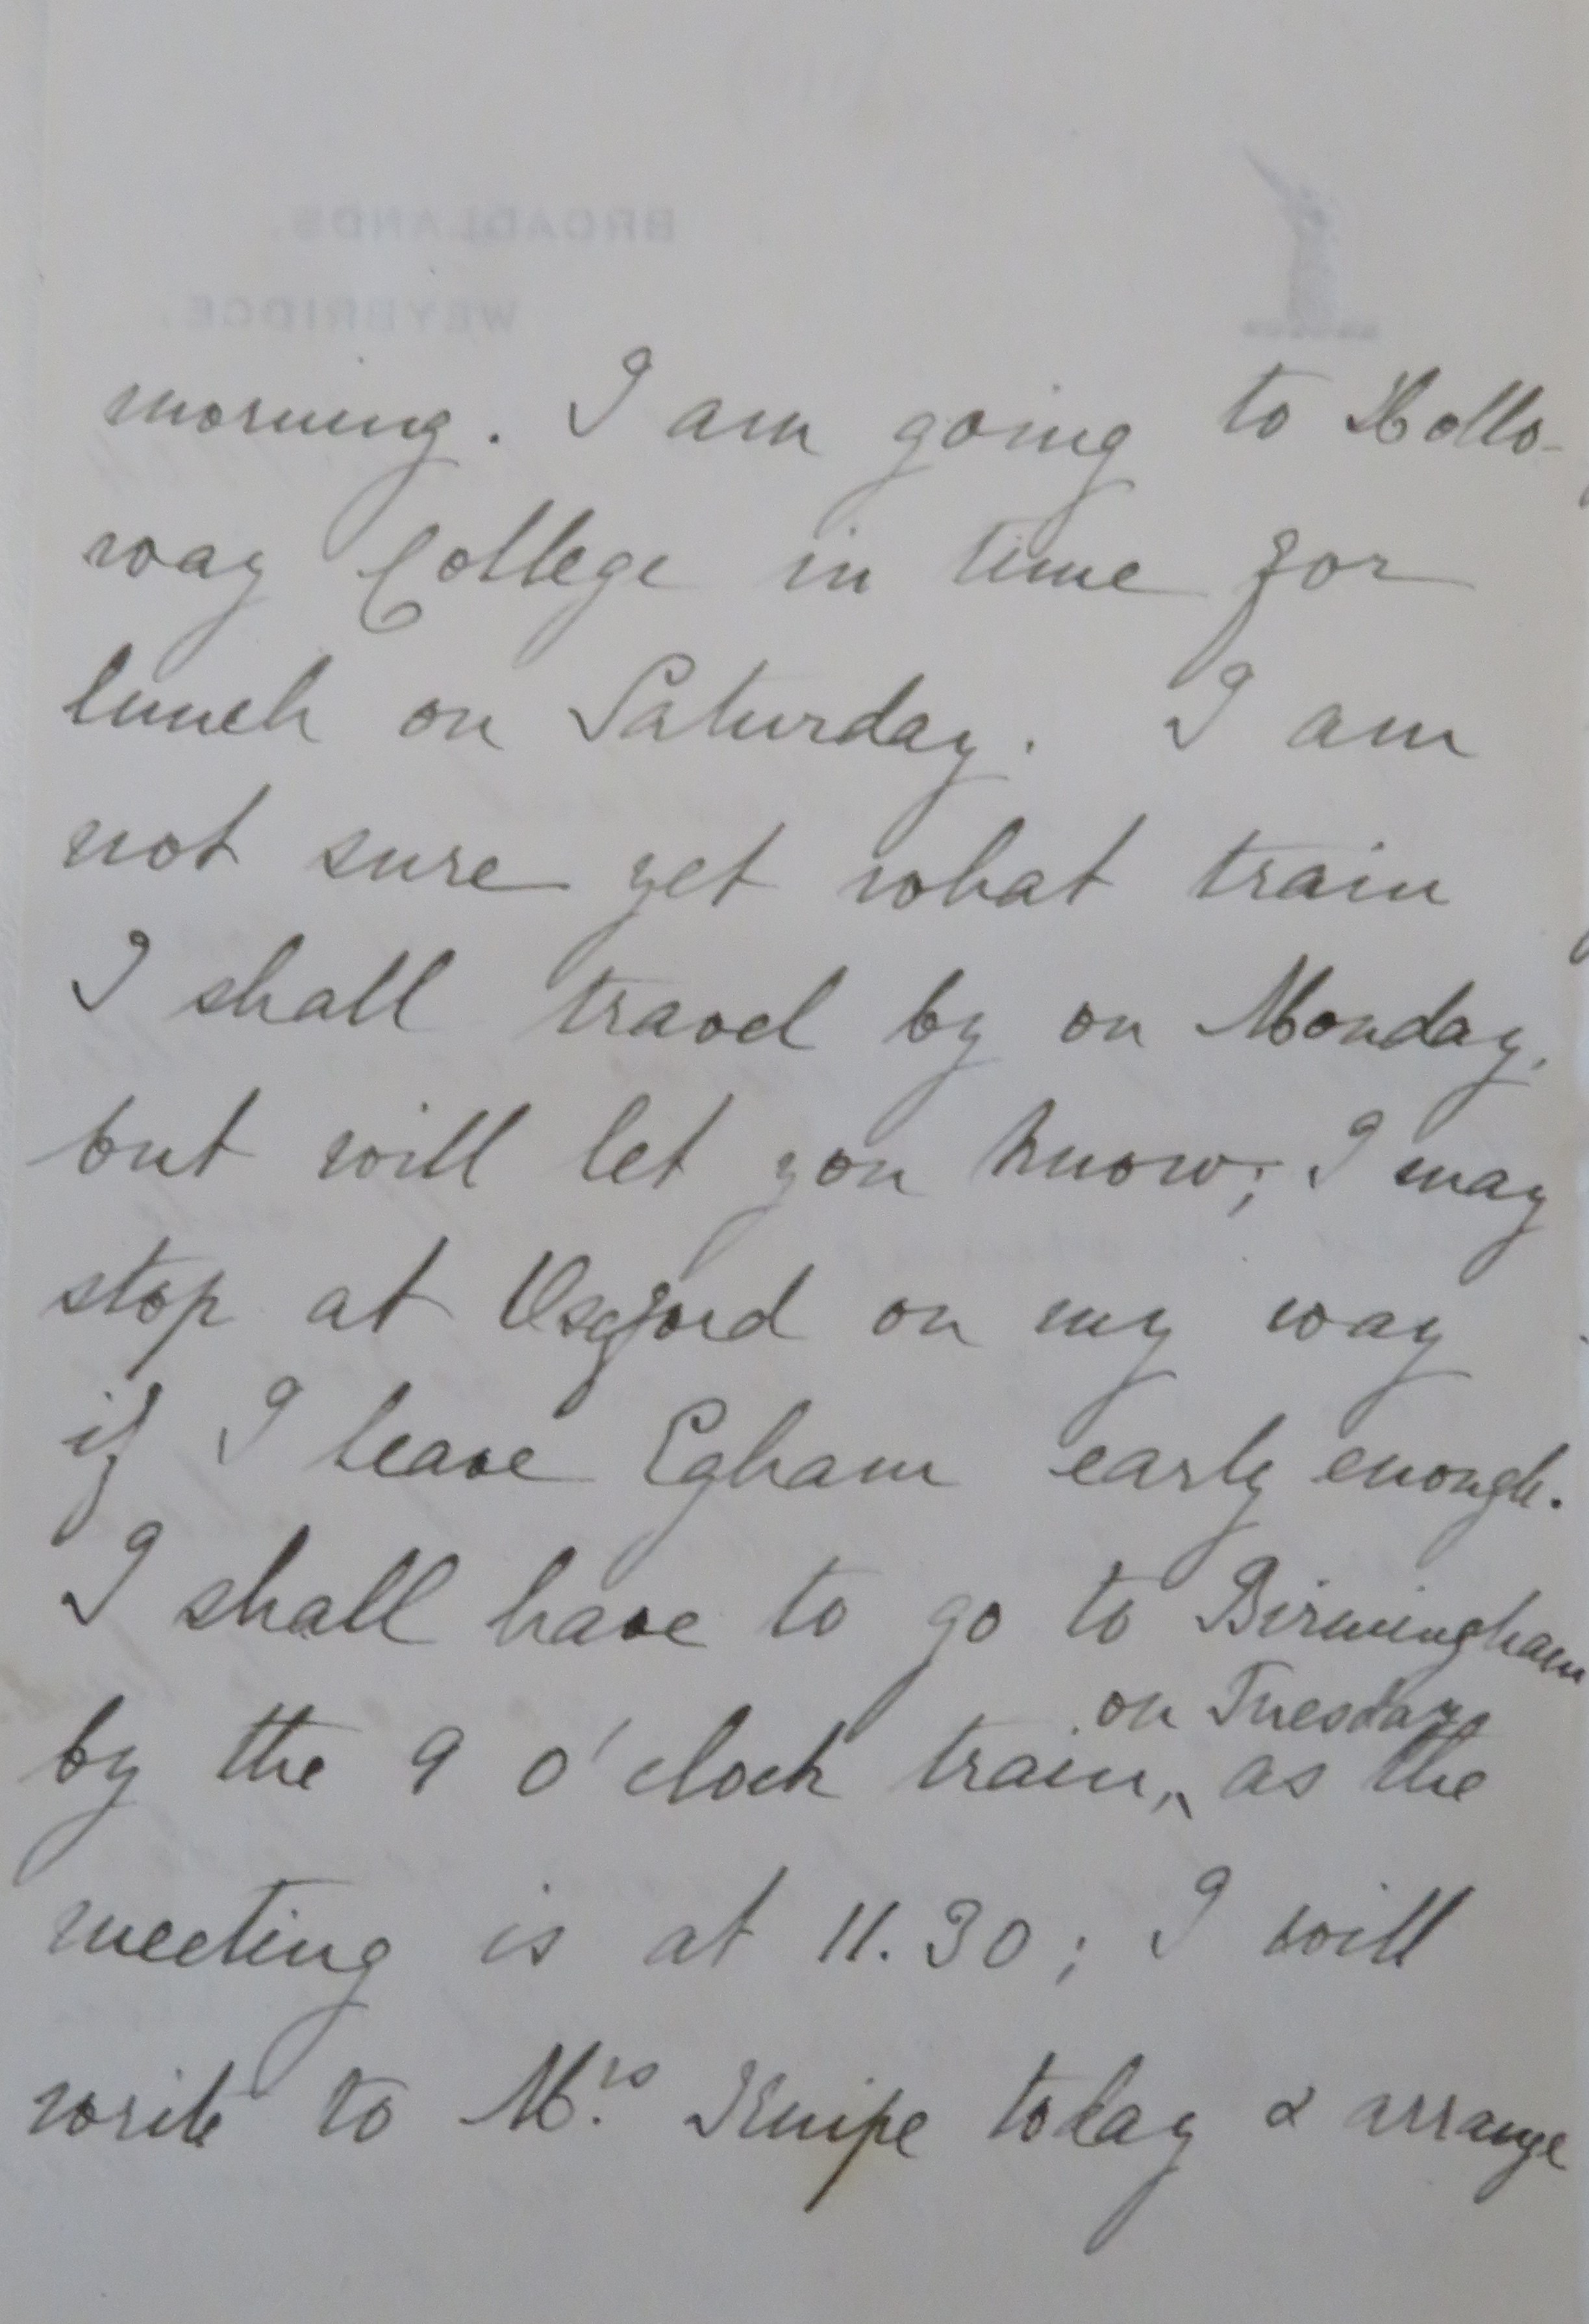 BROADLANDS.
WEYBRIDGE.
morning. I am going to Hollo-
way College in time for
lunch on Saturday. I am
not sure yet what train
I shall travel by on Monday,
but will let you know; I may
stop at Oxford on my way
if I leave Egham early enough.
I shall have to go to Birmingham
on Tuesday
by the 9 o'clock train, as the
meeting is at 11.30; I will
write to Mrs Knipe today & arrange